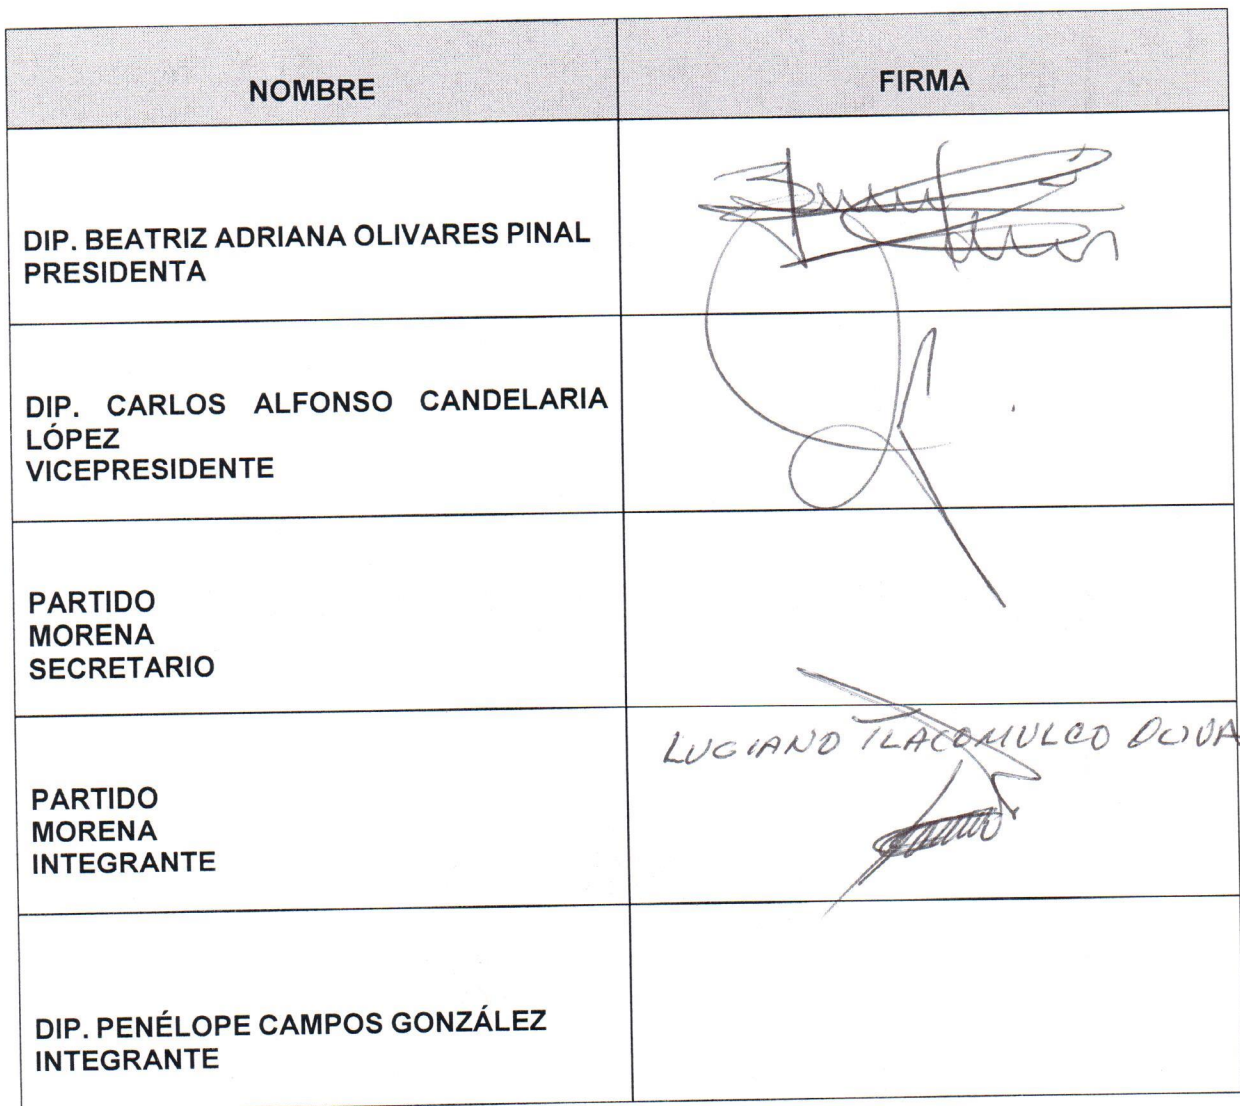 NOMBRE
FIRMA
DIP. BEATRIZ ADRIANA OLIVARES PINAL
PRESIDENTA
DIP. CARLOS ALFONSO CANDELARIA
LÓPEZ
VICEPRESIDENTE
PARTIDO
MORENA
SECRETARIO
LUCIANO TLACOMULCO
PARTIDO
MORENA
INTEGRANTE
DIP. PENÉLOPE CAMPOS GONZÁLEZ
INTEGRANTE